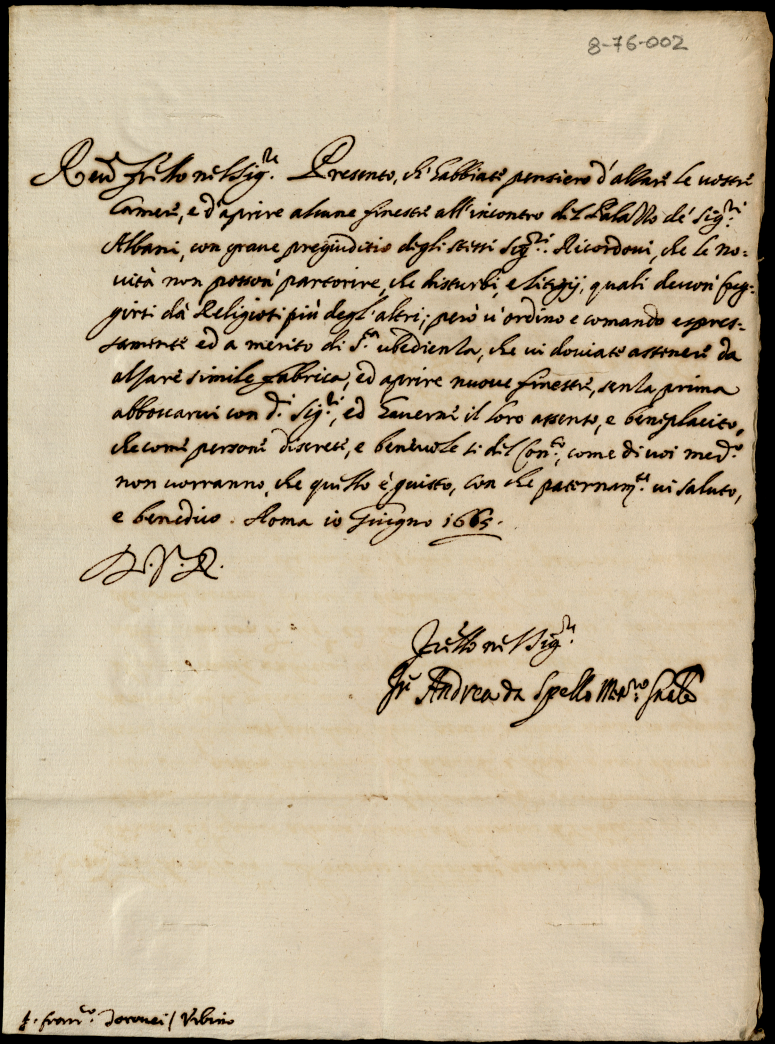 8-76-002
Rev.do fr'ello nel Sig.re Presento, ch'habbiate pensiero d'alzare le vostre
Camere, e d'aprire alcune finestre all'incontro del Palazzo de' Sig.ri
Albani, con grave pregiuditio degli stessi Sig.ri: Ricordovi, che le no=
vità non posson' partorire, che disturbi, e litigij, quali devon' fug=
girsi dà Religiosi più degl'altri; però v'ordino e comando espres=
samente ed a merito di S.ta ubedienza, che vi doviate astenere da
alzare simile fabrica, ed aprire nuove finestre, senza prima
abboccarvi con d.i Sig.ri, ed haverne il loro assenso, e beneplacito,
che come persone discrete, e benevole sì del Con.to, come di voi med.o
non vorranno, che quello è giusto, con che paternam.te vi saluto,
e benedico. Roma 10 Giugno 1665.
D.V.R.
Fr'ello nel Sig.re
Fr. Andrea da Spello Min.ro G'nale
f. Fran.co Urbino